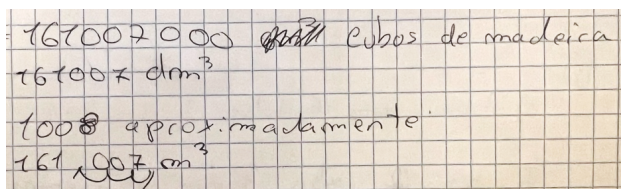 161007000 cubos de madeira
161007 dm³
1008 aproximadamente
161,007 m³